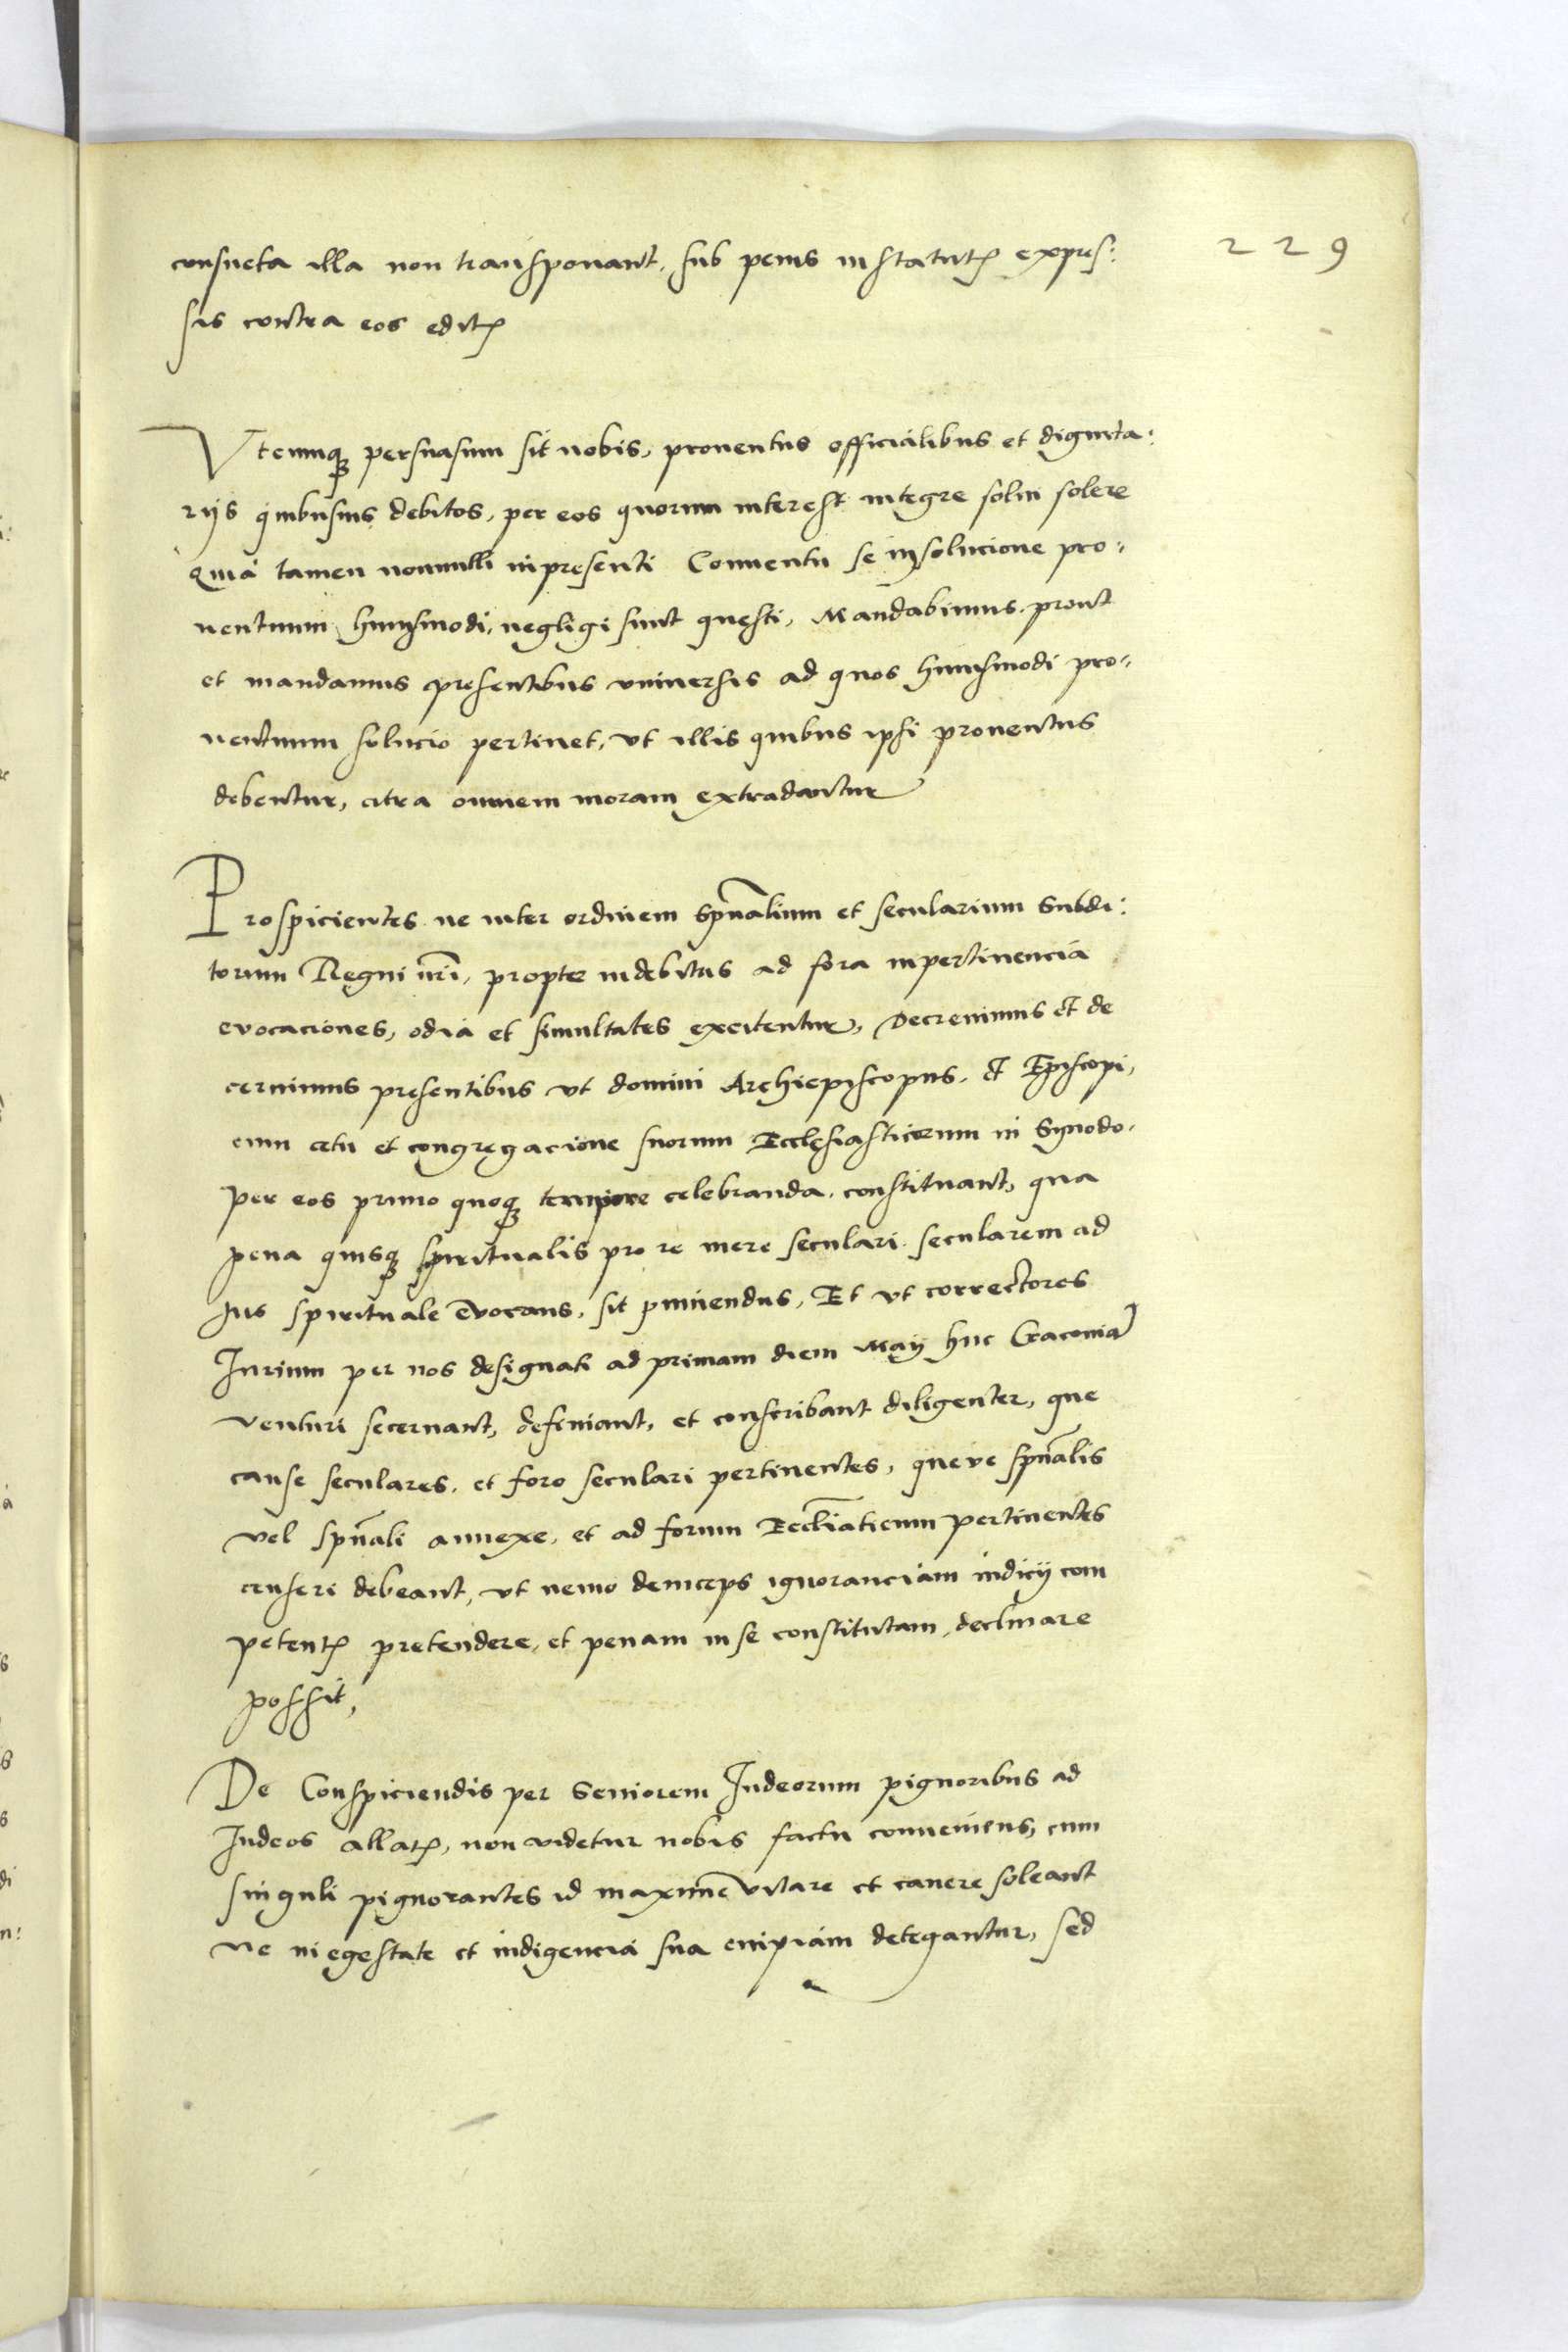 229
consueta illa non transponant, sub penis in statutꝭ expres:
sis contra eos editꝭ
Vtcunqꝫ persuasum sit nobis, prouentus officialibus et dignita:
rijs quibusuis debitos, per eos quorum interest integre solui solere
Quia tamen nonnulli in presenti Conuentu se in solucione pro-
uentuum huiusmodi, negligi sunt questi, Mandabimus, prout
et mandamus presentibus vniuersis ad quos huiusmodi pro-
uentuum solucio pertinet, vt illis quibus ipsi prouentus
debentur, citra omnem moram extradantur
Prospicientes ne inter ordinem Spũalium et secularium Subdi:
torum Regni nr̃i, propter indebitas ad fora inpertinencia
evocaciones, odia et simultates excitentur, Decreuimus et de
cernimus presentibus vt domini Archiepiscopus, et Episcopi,
cum cetu et congregacione suorum Ecclesiasticorum in Synodo,
per eos primo quoqꝫ tempore celebranda, constituant, qua
pena quisqꝫ spiritualis pro re mere seculari secularem ad
Jus spirituale evocans, sit puniendus, Et vt correctores
Jurium per nos designati ad primam diem Maij huc Cracouiã
venturi secernant, definiant, et conscribant diligenter, que
cause seculares, et foro seculari pertinentes, queve spũalis
vel spũali annexe, et ad forum Eccl̃iaticum pertinentes
censeri debeant, vt nemo deinceps ignoranciam iudicij com
petentꝭ pretendere, et penam in se constitutam, declinare
possit,
De Conspiciendis per Seniorem Judeorum pignoribus ad
Judeos allatꝭ, non videtur nobis factu conueniens, cum
singuli pignorantes id maxime vitare et cauere soleant
ne in egestate et indigencia sua cuipiam detegantur, sed